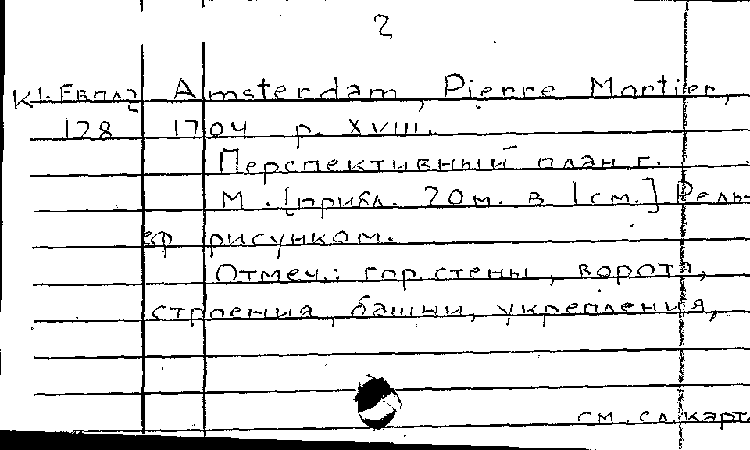 2
К1-Евпл2 Amsterdam, Pierre Mortier,
128 1704 р. XVIII.
Перспективный план г.
М. [прибл. 20м. в 1см.] Рель-
еф рисунком.
Отмеч.: гор. стены, ворота,
строения, башни, укрепления,
см. сл. карт.